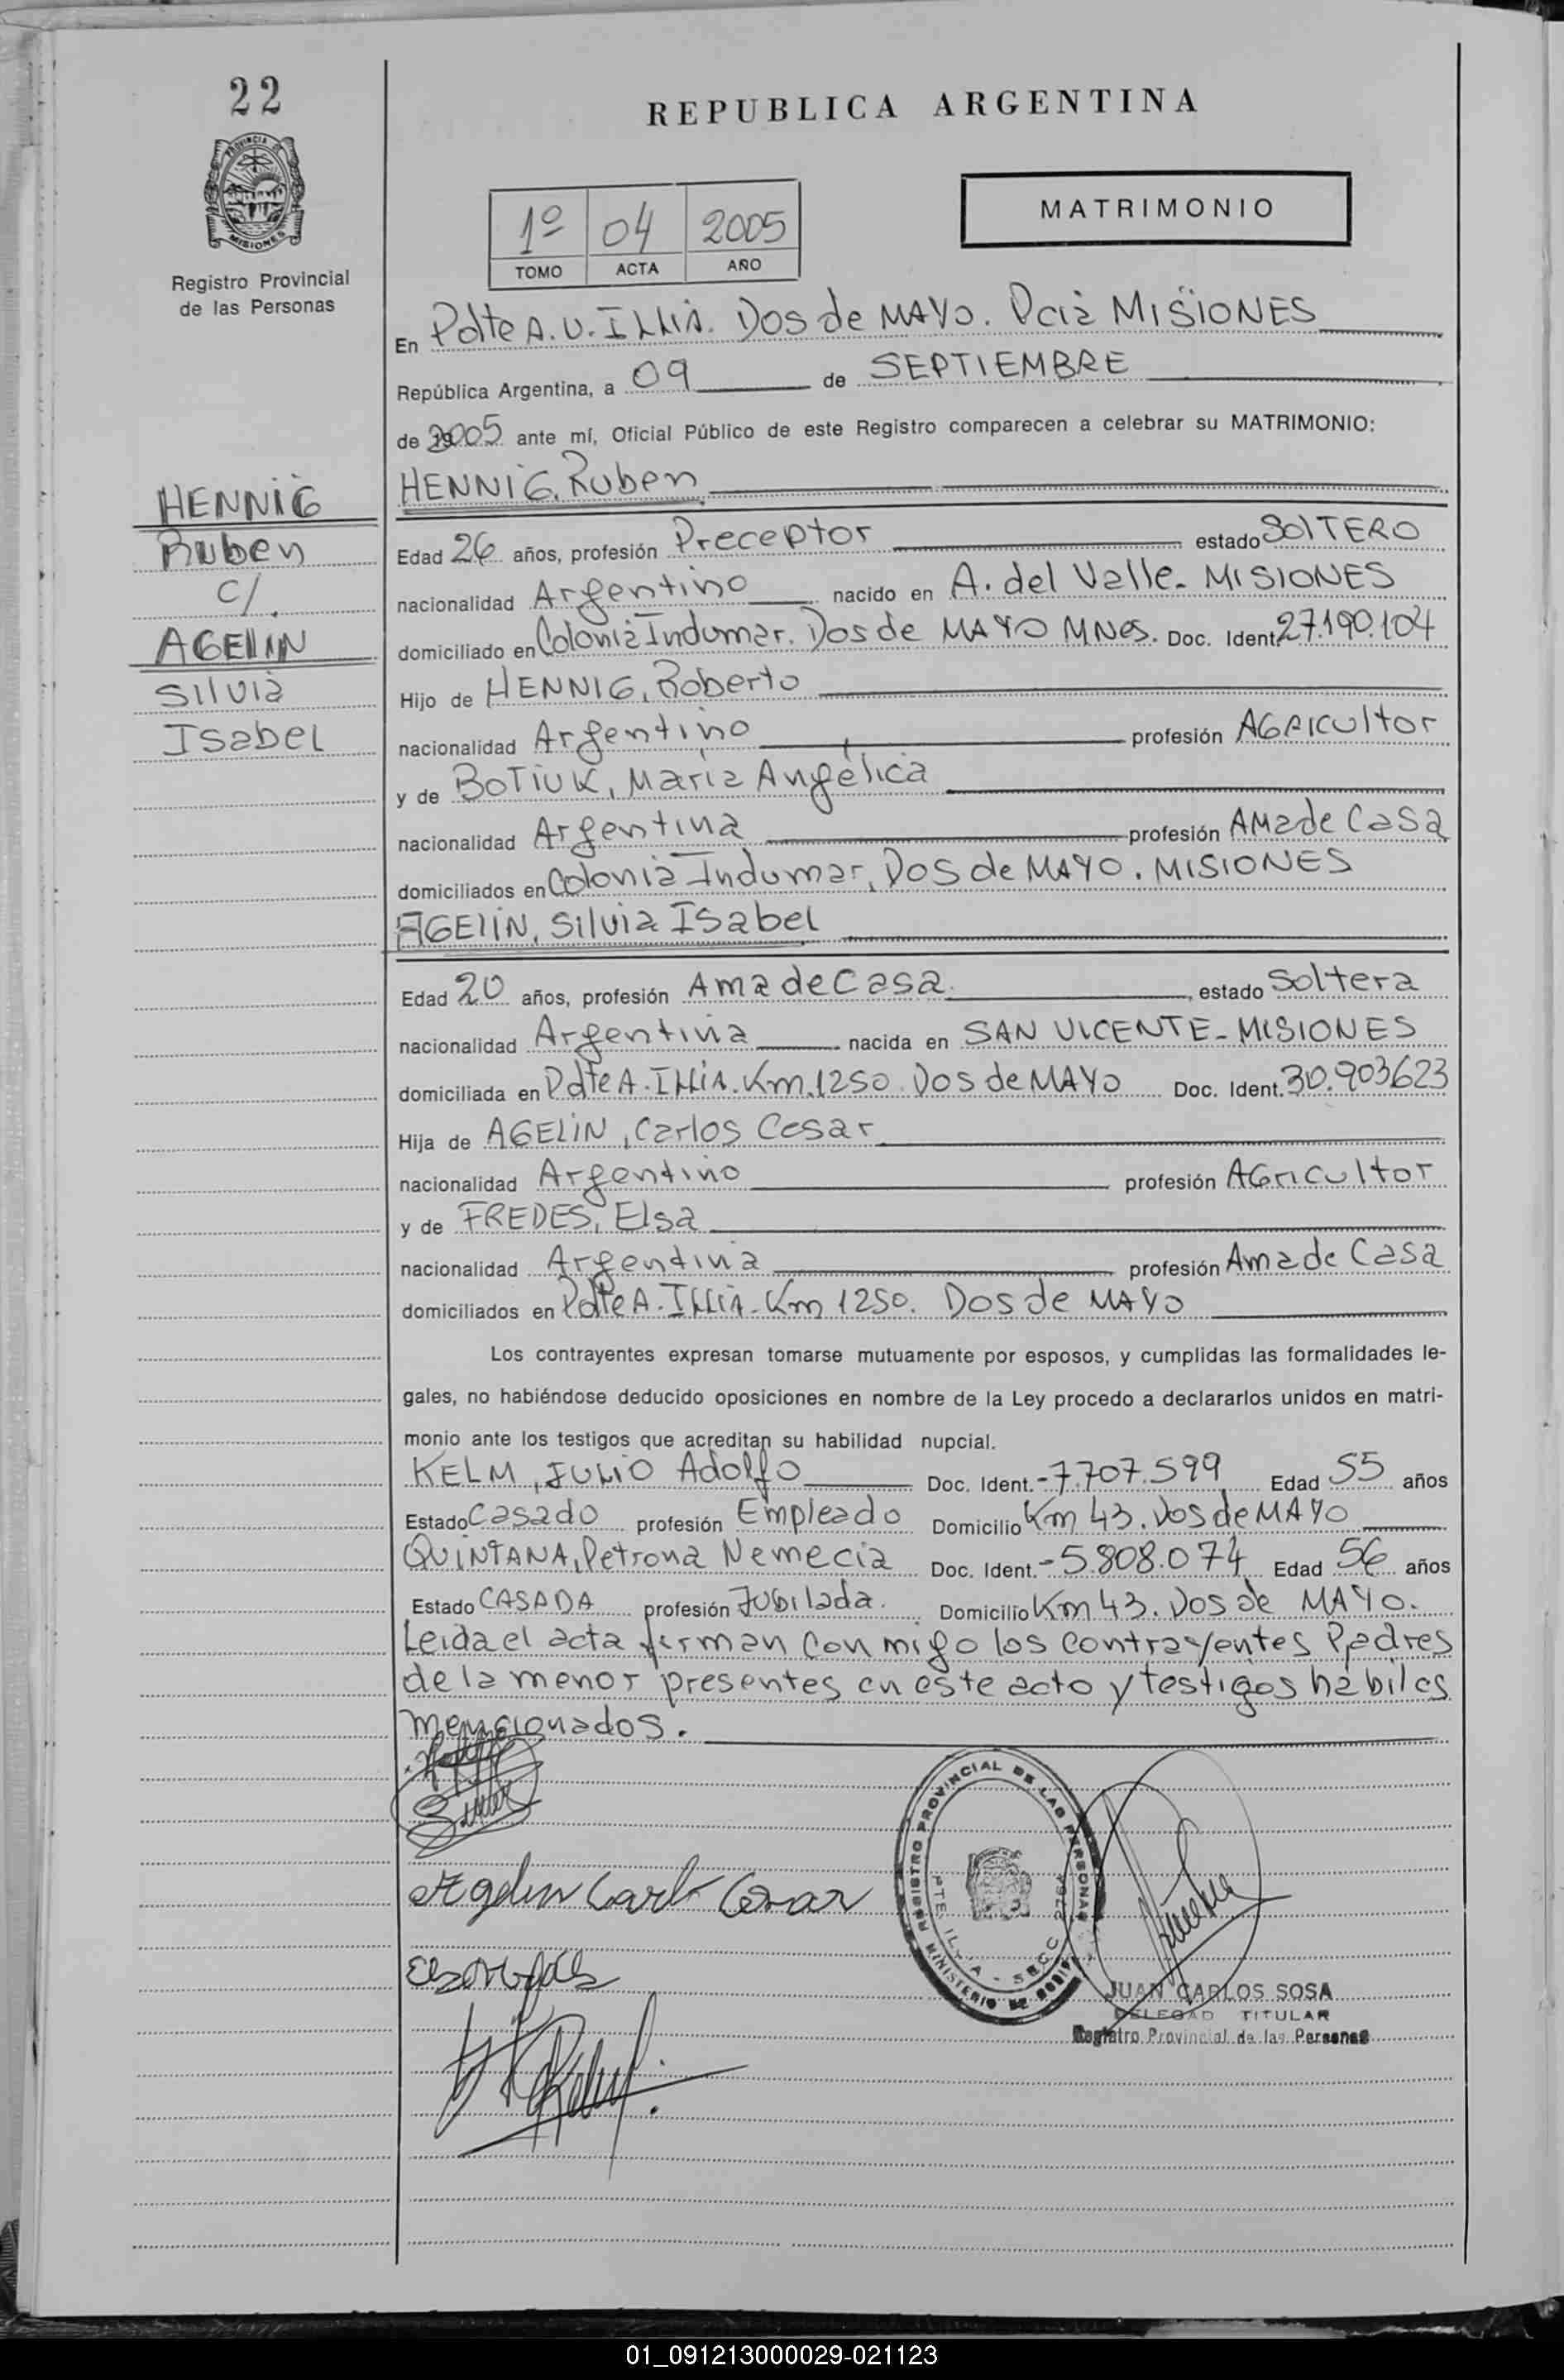 22
REPUBLICA ARGENTINA
PROVINCIA DE
MISIONES
Registro Provincial
de las Personas
1º 04 2005
TOMO ACTA AÑO
MATRIMONIO
En Pdte A.U. ILLIA. Dos de MAYO. Pcia MISIONES
República Argentina, a 09 de SEPTIEMBRE
de 2005 ante mí, Oficial Público de este Registro comparecen a celebrar su MATRIMONIO:
HENNIG
Ruben
C/.
AGELIN
Silvia
Isabel
HENNIG, Ruben
Edad 26 años, profesión Preceptor estado SOLTERO
nacionalidad Argentino nacido en A. del Valle - MISIONES
domiciliado en Colonia Indumar. Dos de MAYO MNes. Doc. Ident. 27.190.104
Hijo de HENNIG, Roberto
nacionalidad Argentino profesión AGRICultor
y de BOTIUK, Maria Angélica
nacionalidad Argentina profesión AMa de Casa
domiciliados en Colonia Indumar, Dos de MAYO. MISIONES
AGELIN, Silvia Isabel
Edad 20 años, profesión Ama de Casa estado Soltera
nacionalidad Argentina nacida en SAN VICENTE - MISIONES
domiciliada en Pdte A. ILLIA. Km.1250. Dos de MAYO Doc. Ident. 30.903623
Hija de AGELIN, Carlos Cesar
nacionalidad Argentino profesión AGricultor
y de FREDES, Elsa
nacionalidad Argentina profesión Ama de Casa
domiciliados en Pdte A. ILLIA - Km 1250. Dos de MAYO
Los contrayentes expresan tomarse mutuamente por esposos, y cumplidas las formalidades le-
gales, no habiéndose deducido oposiciones en nombre de la Ley procedo a declararlos unidos en matri-
monio ante los testigos que acreditan su habilidad nupcial.
KELM, JULIO Adolfo Doc. Ident. - 7.707.599 Edad 55 años
Estado Casado profesión Empleado Domicilio Km 43. Dos de MAYO
QUINTANA, Petrona Nemecia Doc. Ident. - 5.808.074 Edad 56 años
Estado CASADA profesión Jubilada. Domicilio Km 43. Dos de MAYO.
Leida el acta firman conmigo los contrayentes Padres
de la menor presentes en este acto y testigos hábiles
mencionados.
Agelin Carlos Cesar
REGISTRO PROVINCIAL DE LAS PERSONAS
MINISTERIO DE
JUAN CARLOS SOSA
DELEGAD TITULAR
Registro Provincial de las Personas
01_091213000029-021123